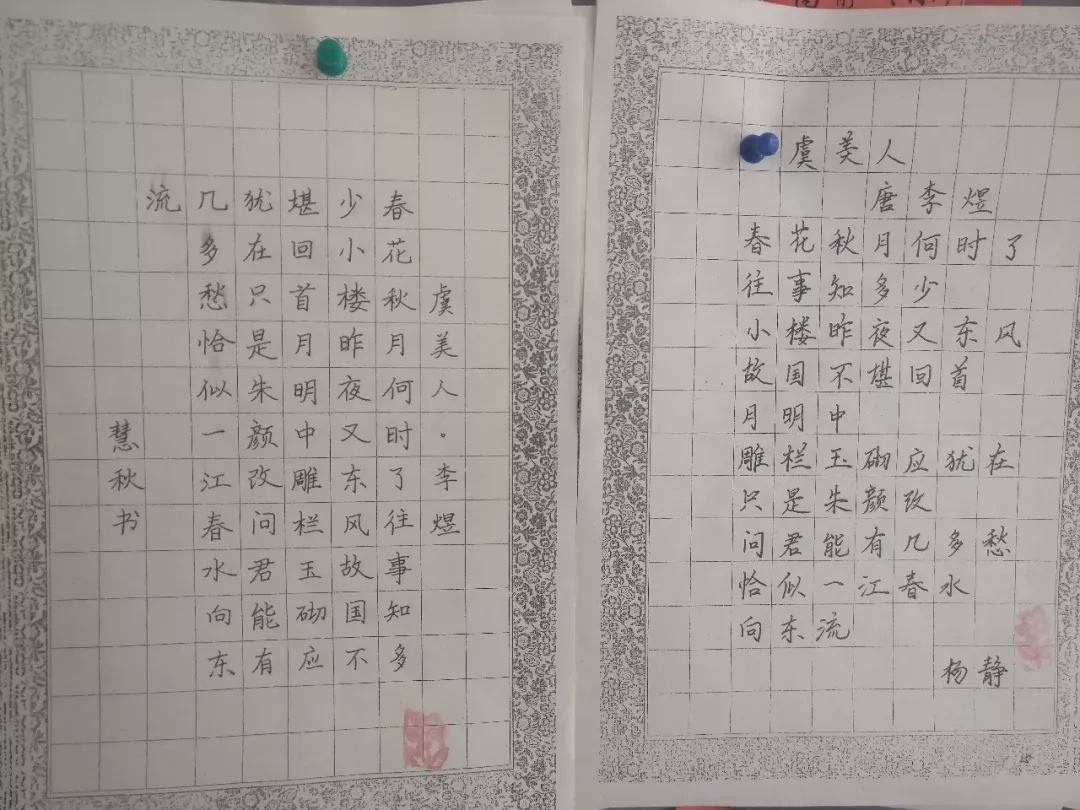 虞美人·李煜
春花秋月何时了往事知多
少小楼昨夜又东风故国不
堪回首月明中雕栏玉砌应
犹在只是朱颜改问君能有
几多愁恰似一江春水向东
流
慧秋书
虞美人
唐李煜
春花秋月何时了
往事知多少
小楼昨夜又东风
故国不堪回首
月明中
雕栏玉砌应犹在
只是朱颜改
问君能有几多愁
恰似一江春水
向东流
杨静